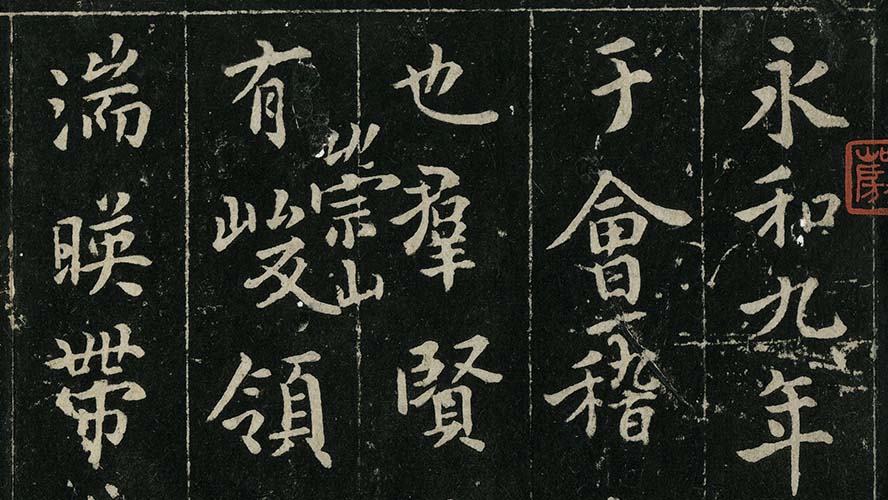 永和九年
于會稽
也羣賢
崇山
有峻領
湍暎帶